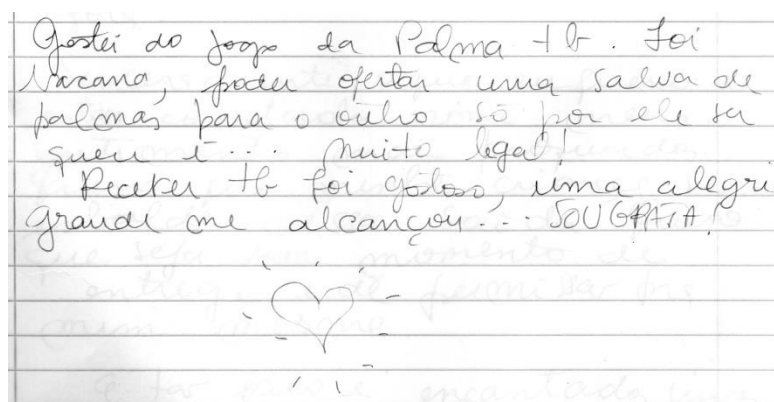 Gostei do jogo da Palma tb. Foi
bacana, poder ofertar uma salva de
palmas para o outro só por ele ser
quem é... Muito legal!
Receber tb foi gostoso, uma alegri
grande me alcançou... SOU GRATA!